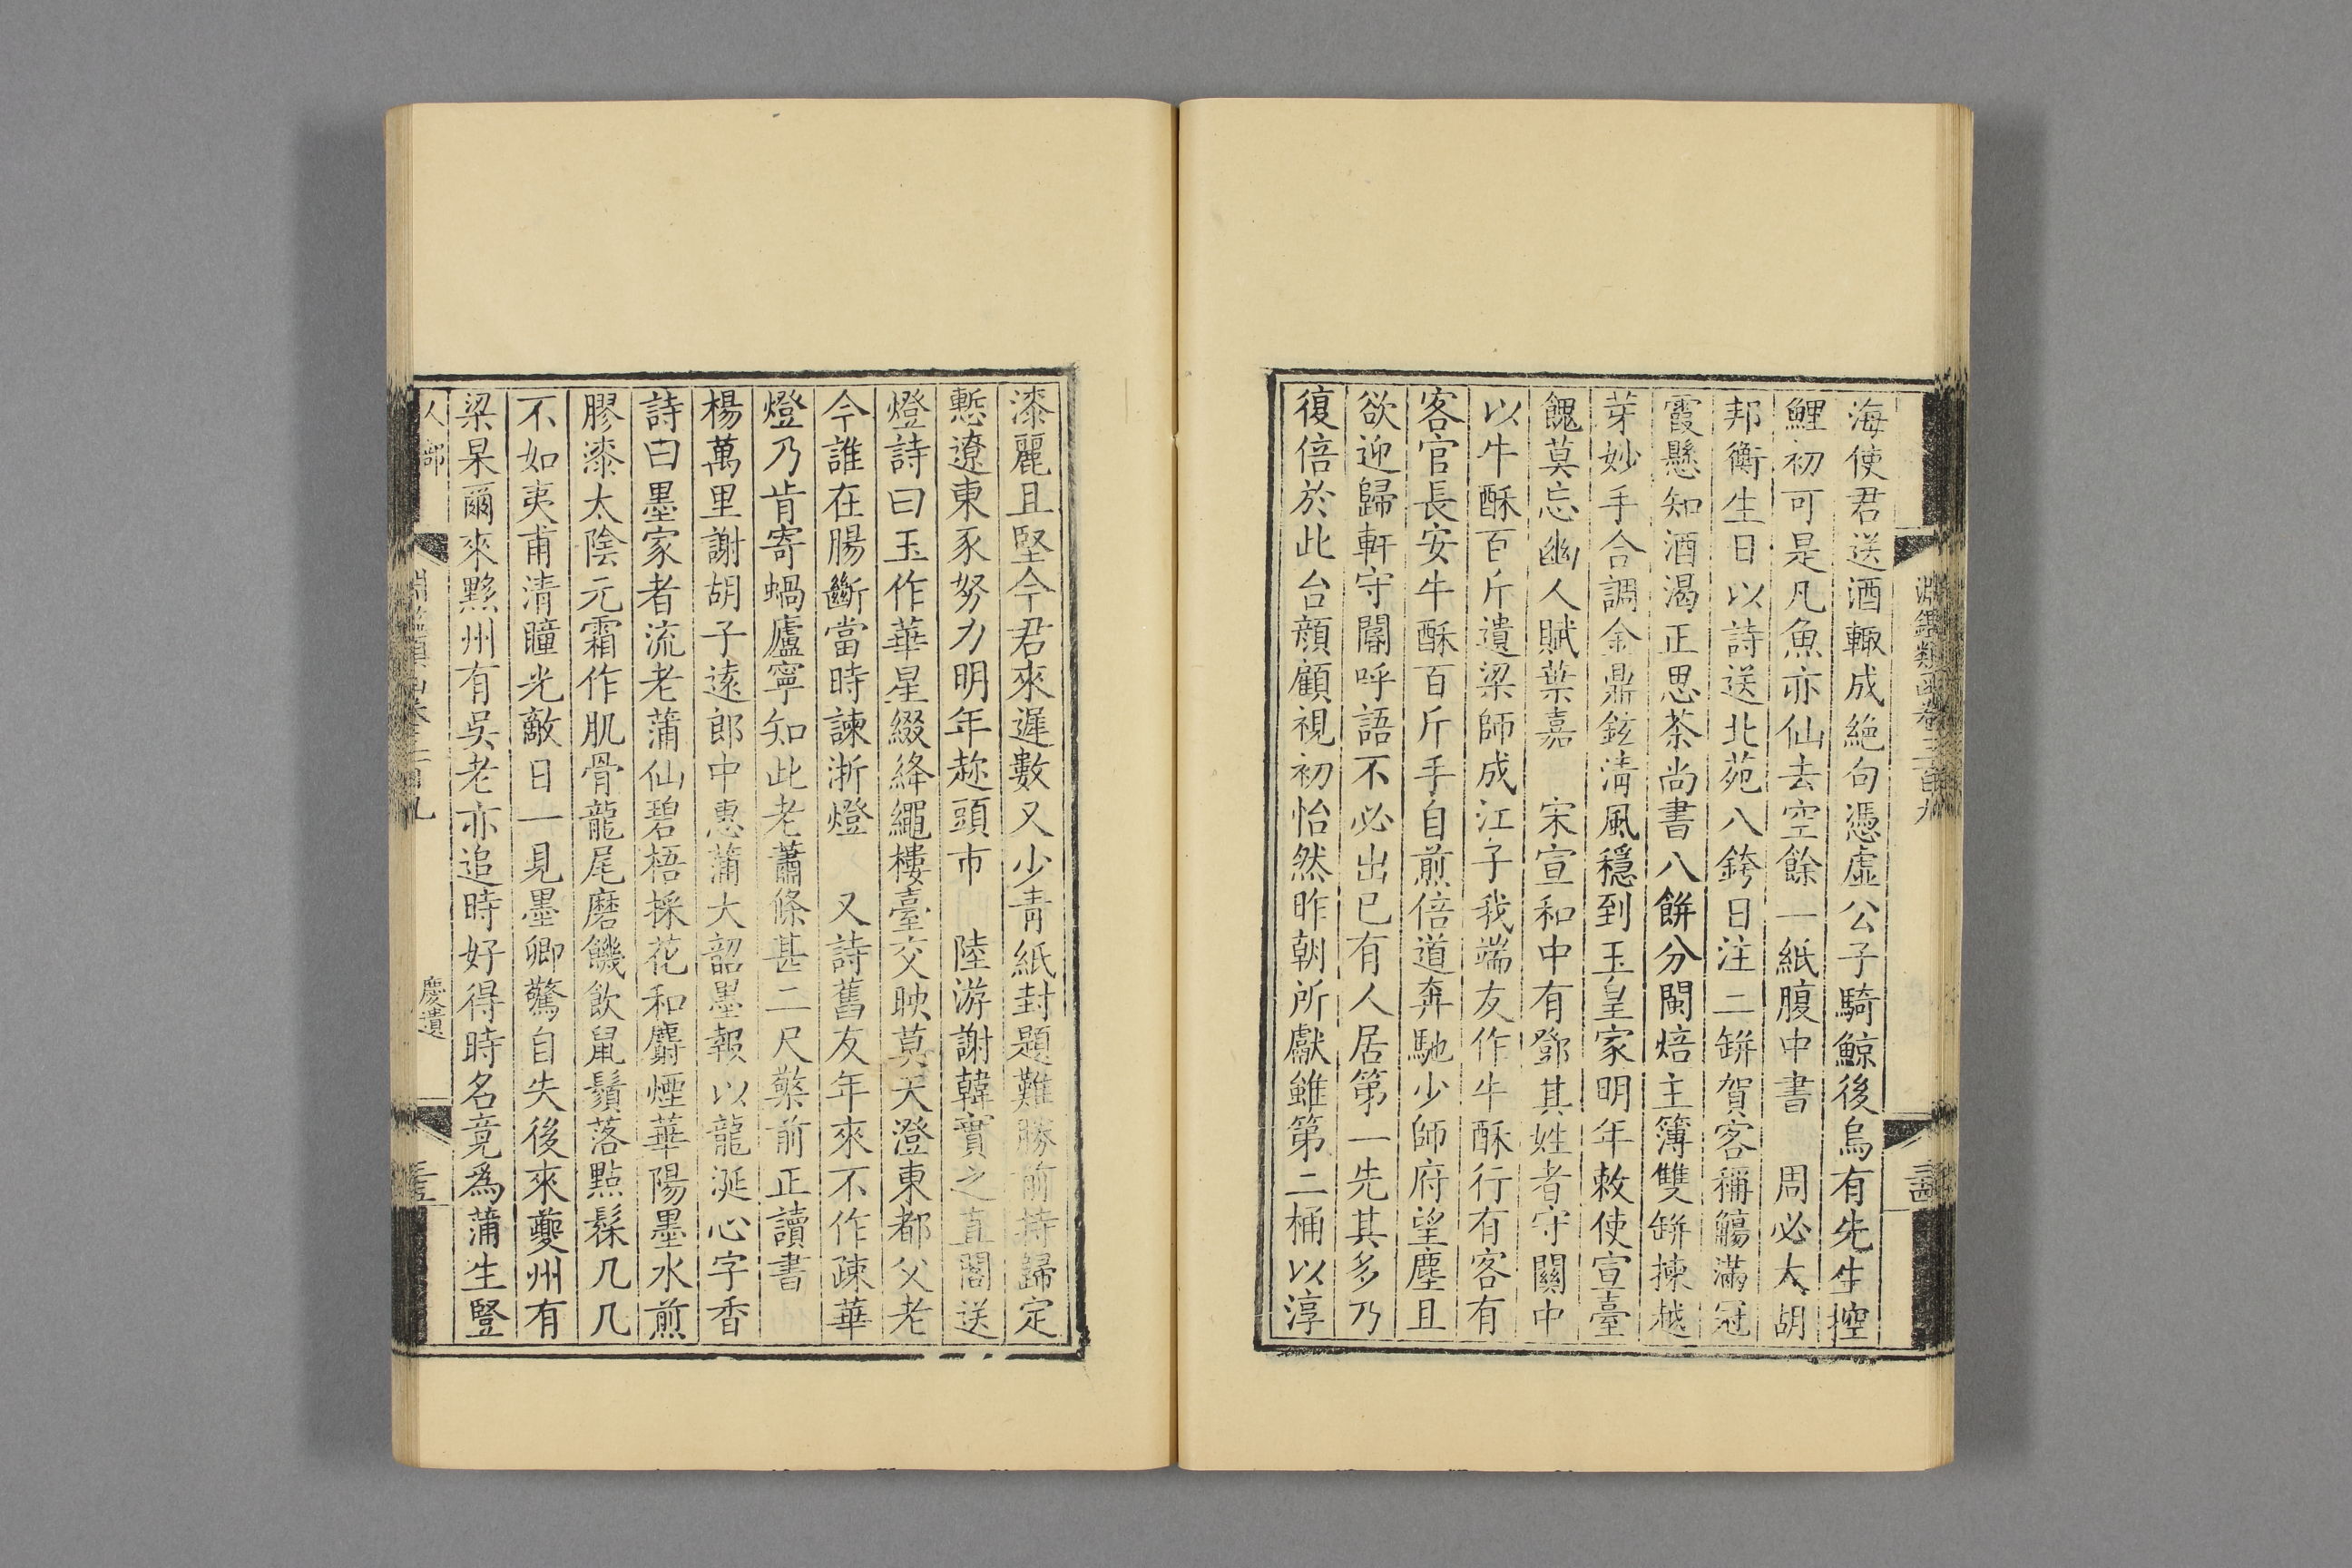 淵鑑類函卷三百九
海使君送酒輙成絶句憑虛公子騎鯨後烏有先生控
鯉初可是凡魚亦仙去空餘一紙腹中書　周必大胡
邦衡生日以詩送北苑八銙日注二缾賀客稱觴滿冠
霞懸知酒渴正思茶尚書八餅分閩焙主簿雙缾揀越
芽妙手合調金鼎鉉淸風穩到玉皇家明年敕使宣臺
餽莫忘幽人賦葉嘉　宋宣和中有鄧其姓者守關中
以牛酥百斤遺梁師成江子我端友作牛酥行有客有
客官長安牛酥百斤手自煎倍道奔馳少師府望塵且
欲迎歸軒守閽呼語不必出已有人居第一先其多乃
復倍於此台顏顧視初怡然昨朝所獻雖第二桶以淳
漆麗且堅今君來遲數又少靑紙封題難勝前持歸定
慙遼東豕努力明年趂頭市　陸游謝韓實之直閣送
燈詩曰玉作華星綴絳繩樓臺交映莫天澄東都父老
今誰在腸斷當時諫浙燈　又詩舊友年來不作疎華
燈乃肯寄蝸廬寧知此老蕭條甚二尺檠前正讀書
楊萬里謝胡子遠郎中惠蒲大韶墨報以龍涎心字香
詩曰墨家者流老蒲仙碧梧採花和麝煙華陽墨水煎
膠漆太陰元霜作肌骨龍尾磨饑飲鼠鬚落點髹几几
不如夷甫清瞳光敵日一見墨卿驚自失後來夔州有
梁杲爾來黟州有吳老亦追時好得時名竟爲蒲生豎
人部
淵鑑類函卷三百九
慶遺